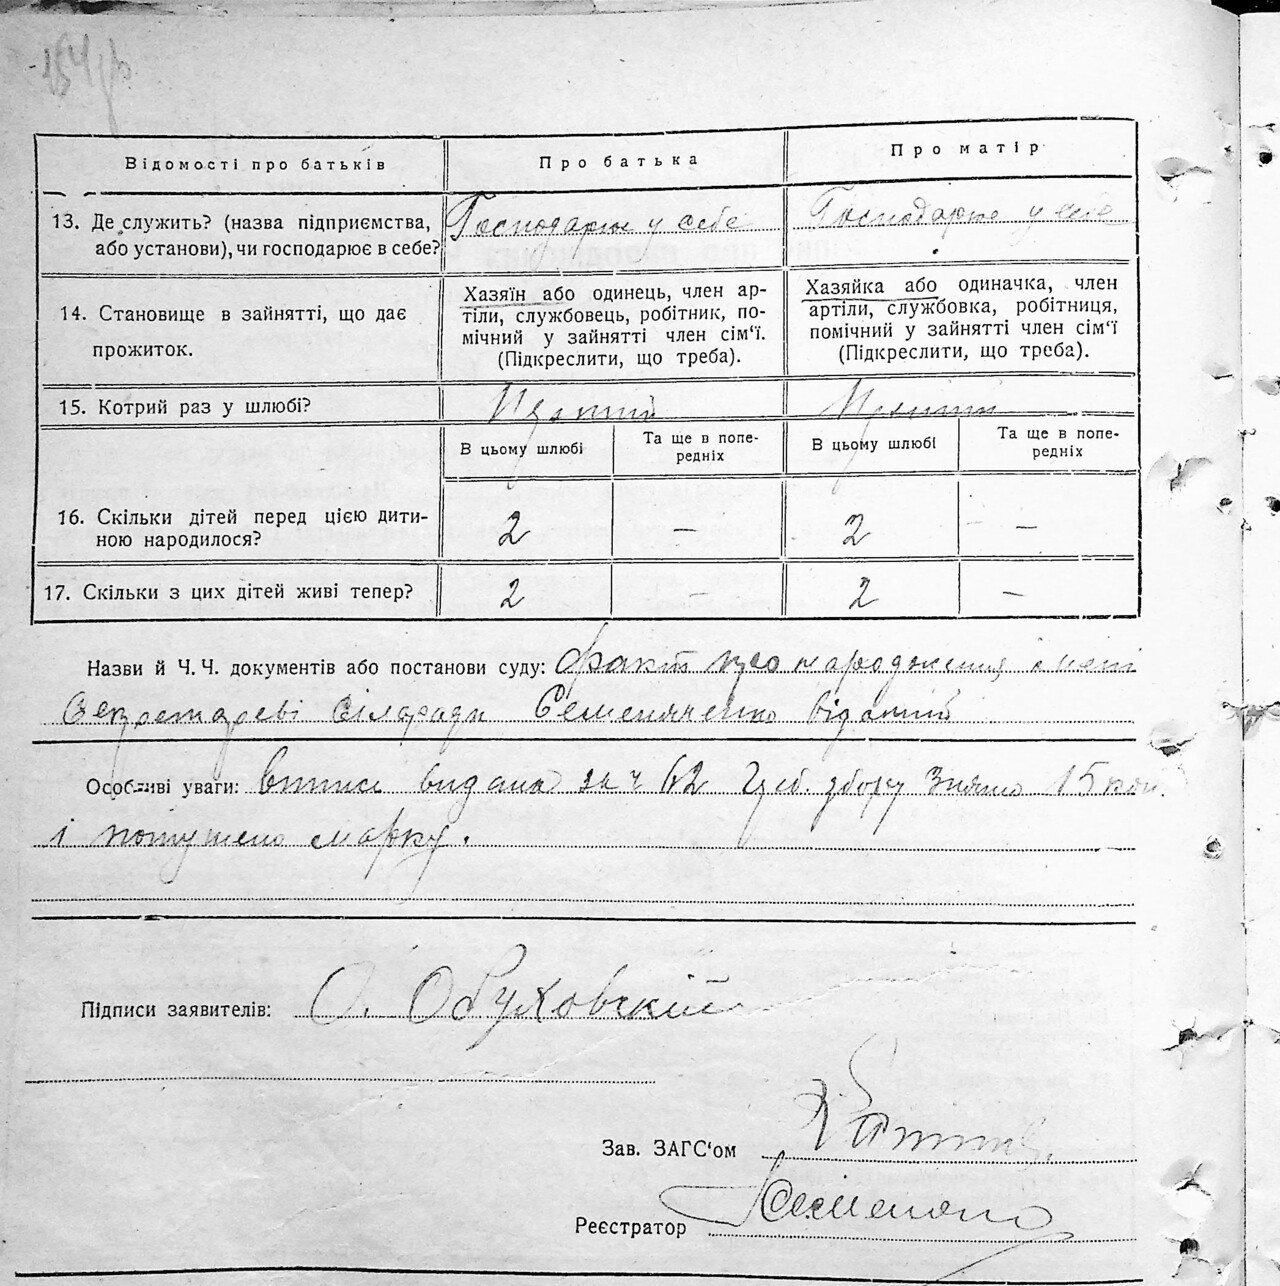 Відомості про батьків
Про батька
Про матір
13. Де служить? (назва підприємства, або установи), чи господарює в себе?
Господарює у себе
Господарює у себе
14. Становище в зайнятті, що дає прожиток.
Хазяїн або одинець, член ар-
тіли, службовець, робітник, по-
мічний у зайнятті член сім'ї.
(Підкреслити, що треба).
Хазяйка або одиначка, член
артіли, службовка, робітниця,
помічний у зайнятті член сім'ї
(Підкреслити, що треба).
15. Котрий раз у шлюбі?
В цьому шлюбі
Та ще в попе-
редніх
В цьому шлюбі
Та ще в попе-
редніх
16. Скільки дітей перед цією дити-
ною народилося?
2
–
2
–
17. Скільки з цих дітей живі тепер?
2
–
2
–
Назви й Ч. Ч. документів або постанови суду: факт про народження
Секретареві сілради відомий
Особливі уваги: випис видана за ч 62 збору знято 15 коп.
і погушено марку.
Підписи заявителів: О. Обуховскій
Зав. ЗАГС'ом
Реєстратор